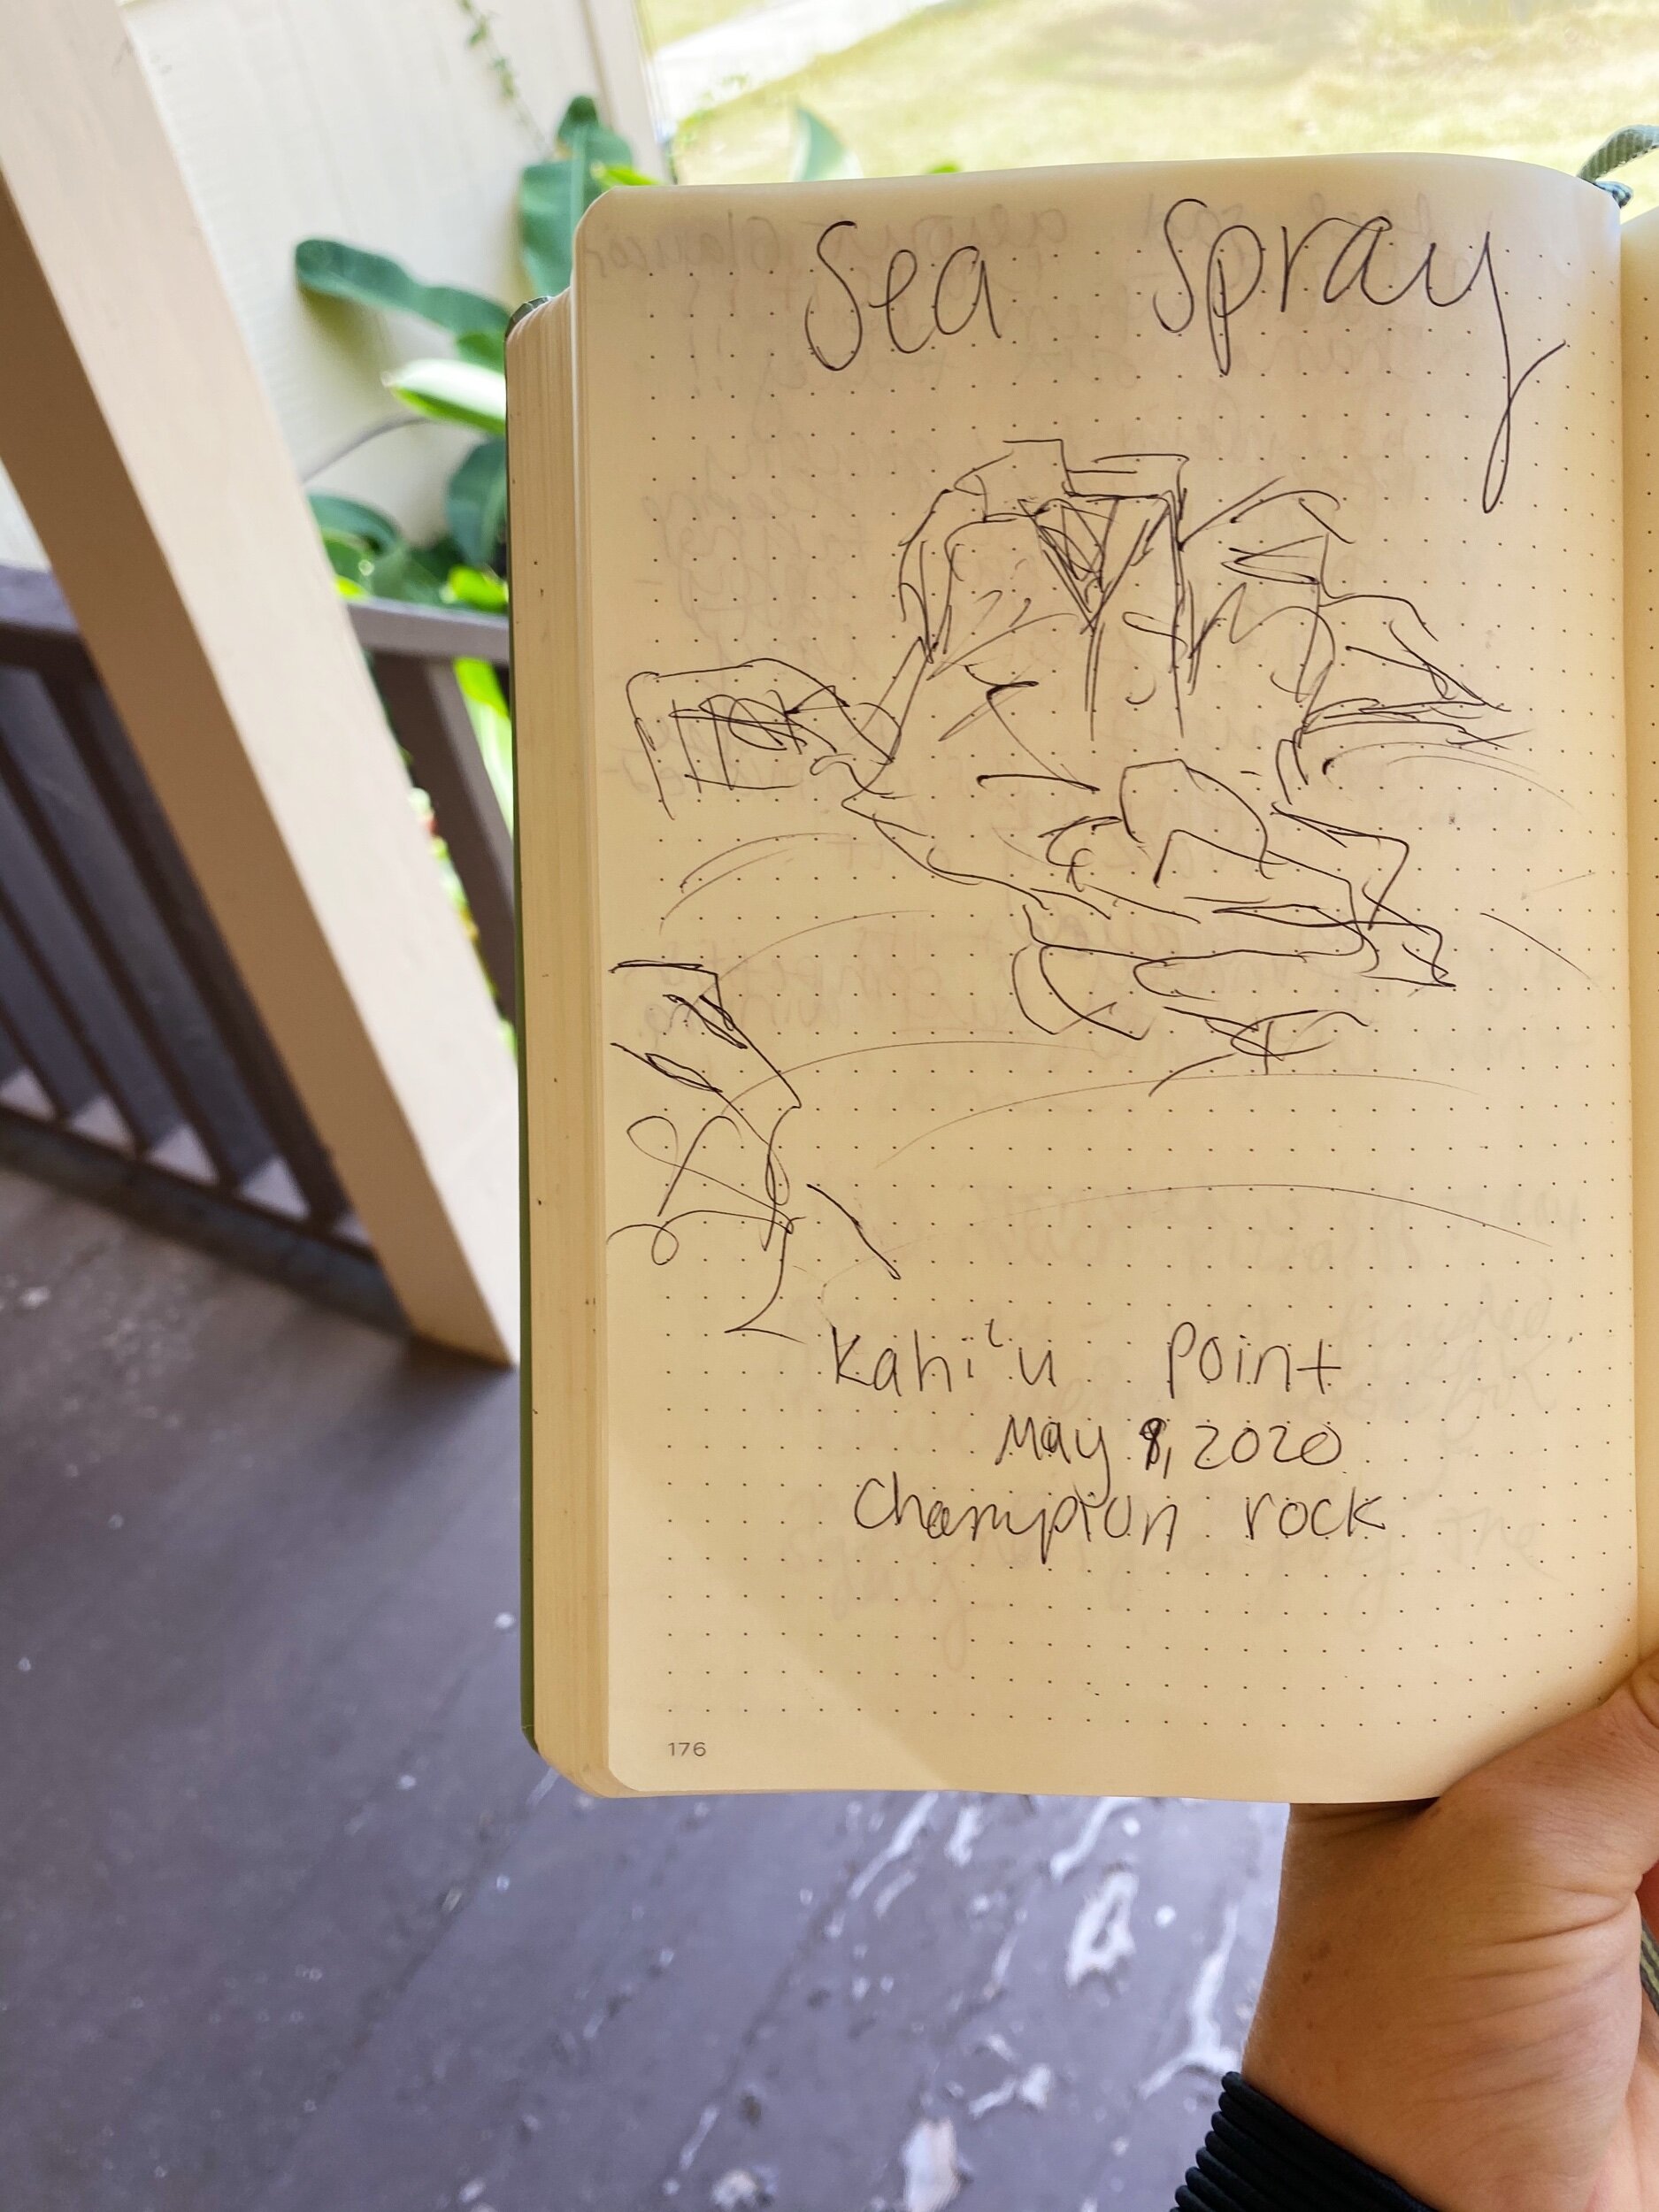 Sea Spray
Kahiʻu Point
May 8, 2020
Champion rock
176